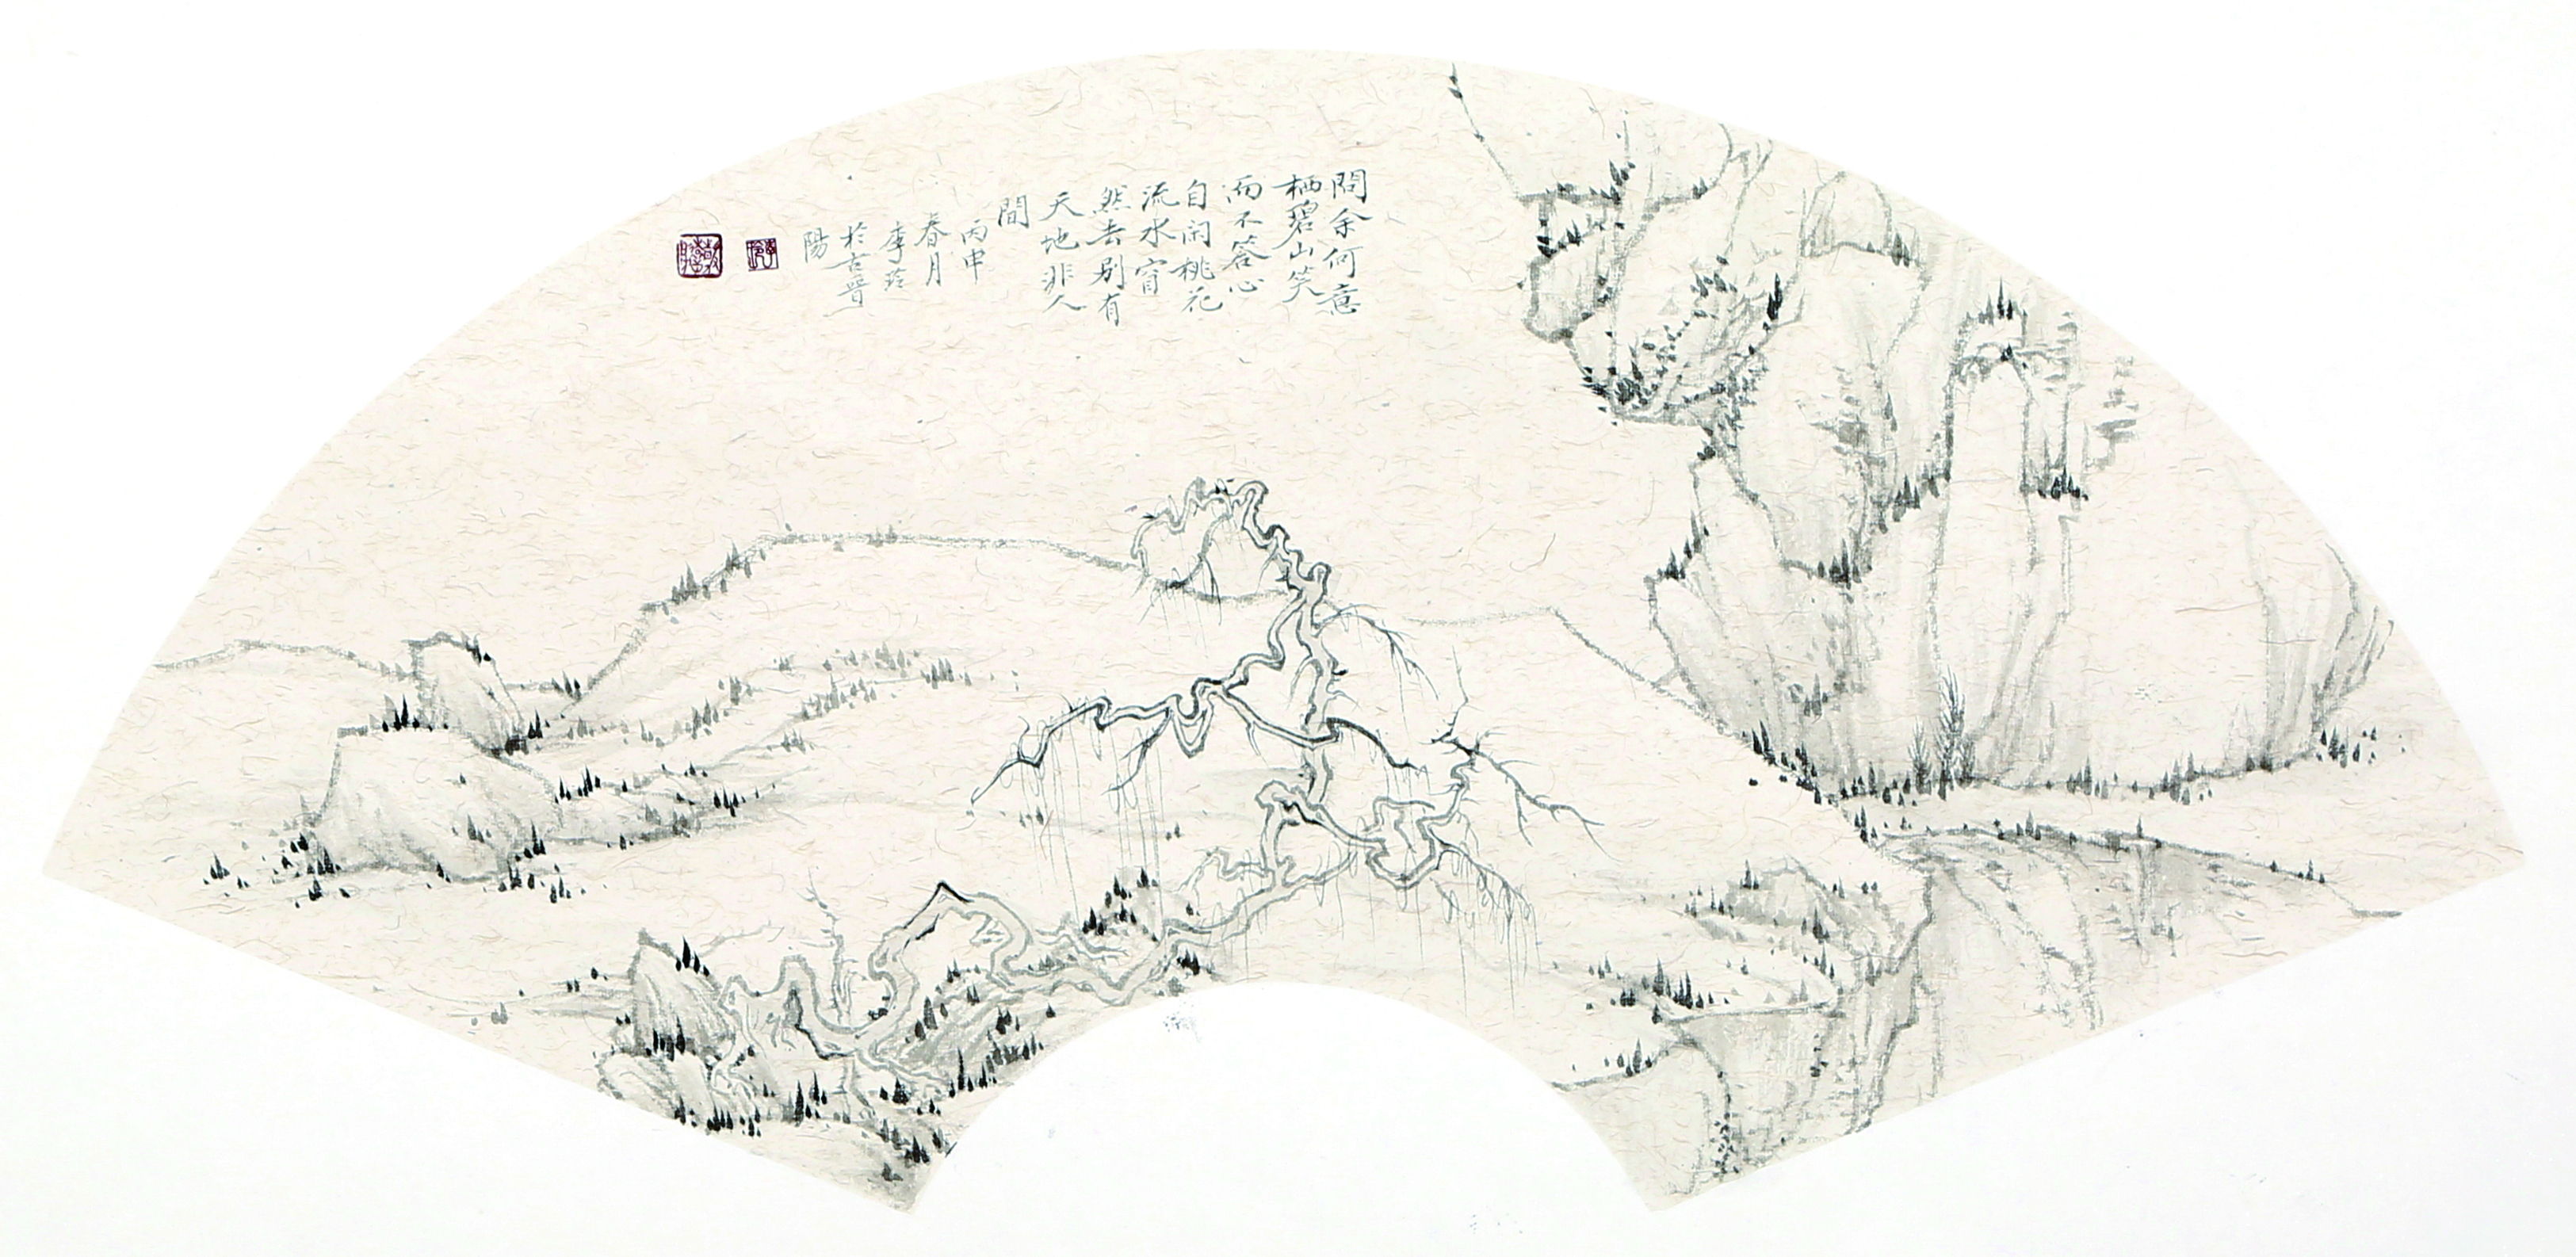 問余何意
栖碧山笑
而不答心
自闲桃花
流水窅
然去别有
天地非人
間
丙申
春月
李玲
於古晋
陽